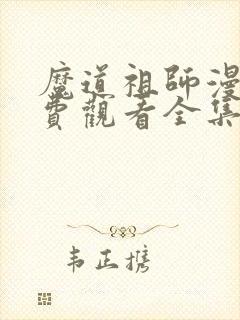 魔道祖師漫
費觀看全集
韦正携